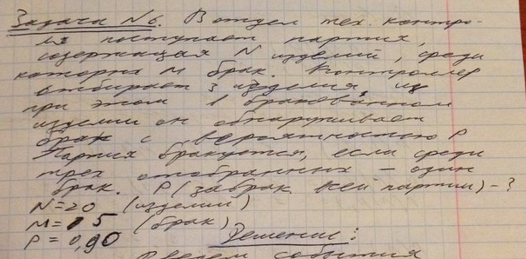 Задача №6. В отдел тех. контро-
ля поступает партия,
содержащая N изделий, среди
которых M брак. Контролер
отбирает 3 изделия, 
при этом в бракованном
изделии он обнаруживает
брак с вероятностью P
Партия бракуется, если среди
трех отобранных – один
брак. P(забрак. всей партии) - ?
N=20 (изделий)
M=15 (брак)
P=0,90 Решение:
Введем события